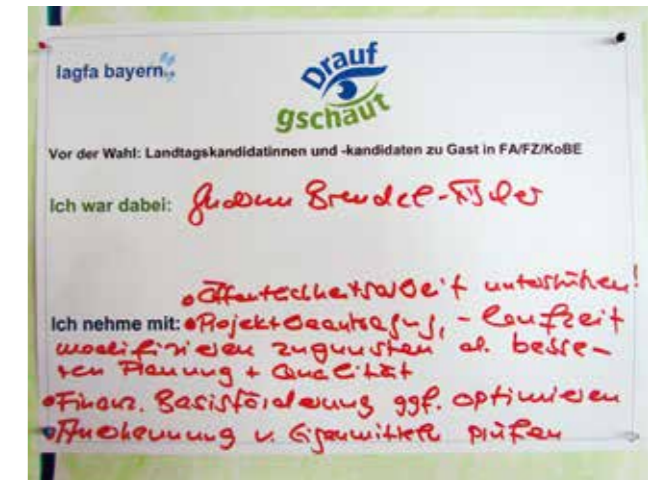 lagfa bayern
Drauf
gschaut
Vor der Wahl: Landtagskandidatinnen und -kandidaten zu Gast in FA/FZ/KoBE
Ich war dabei: Gudrun Brendel-Fischer
• Öffentlichkeitsarbeit unterstützen!
Ich nehme mit: • Projektbeantragung, - laufzeit
modifizieren zugunsten d. besse-
ren Planung + Qualität
• Finanz. Basisförderung ggf. optimieren
• Anerkennung v. Eigenmitteln prüfen